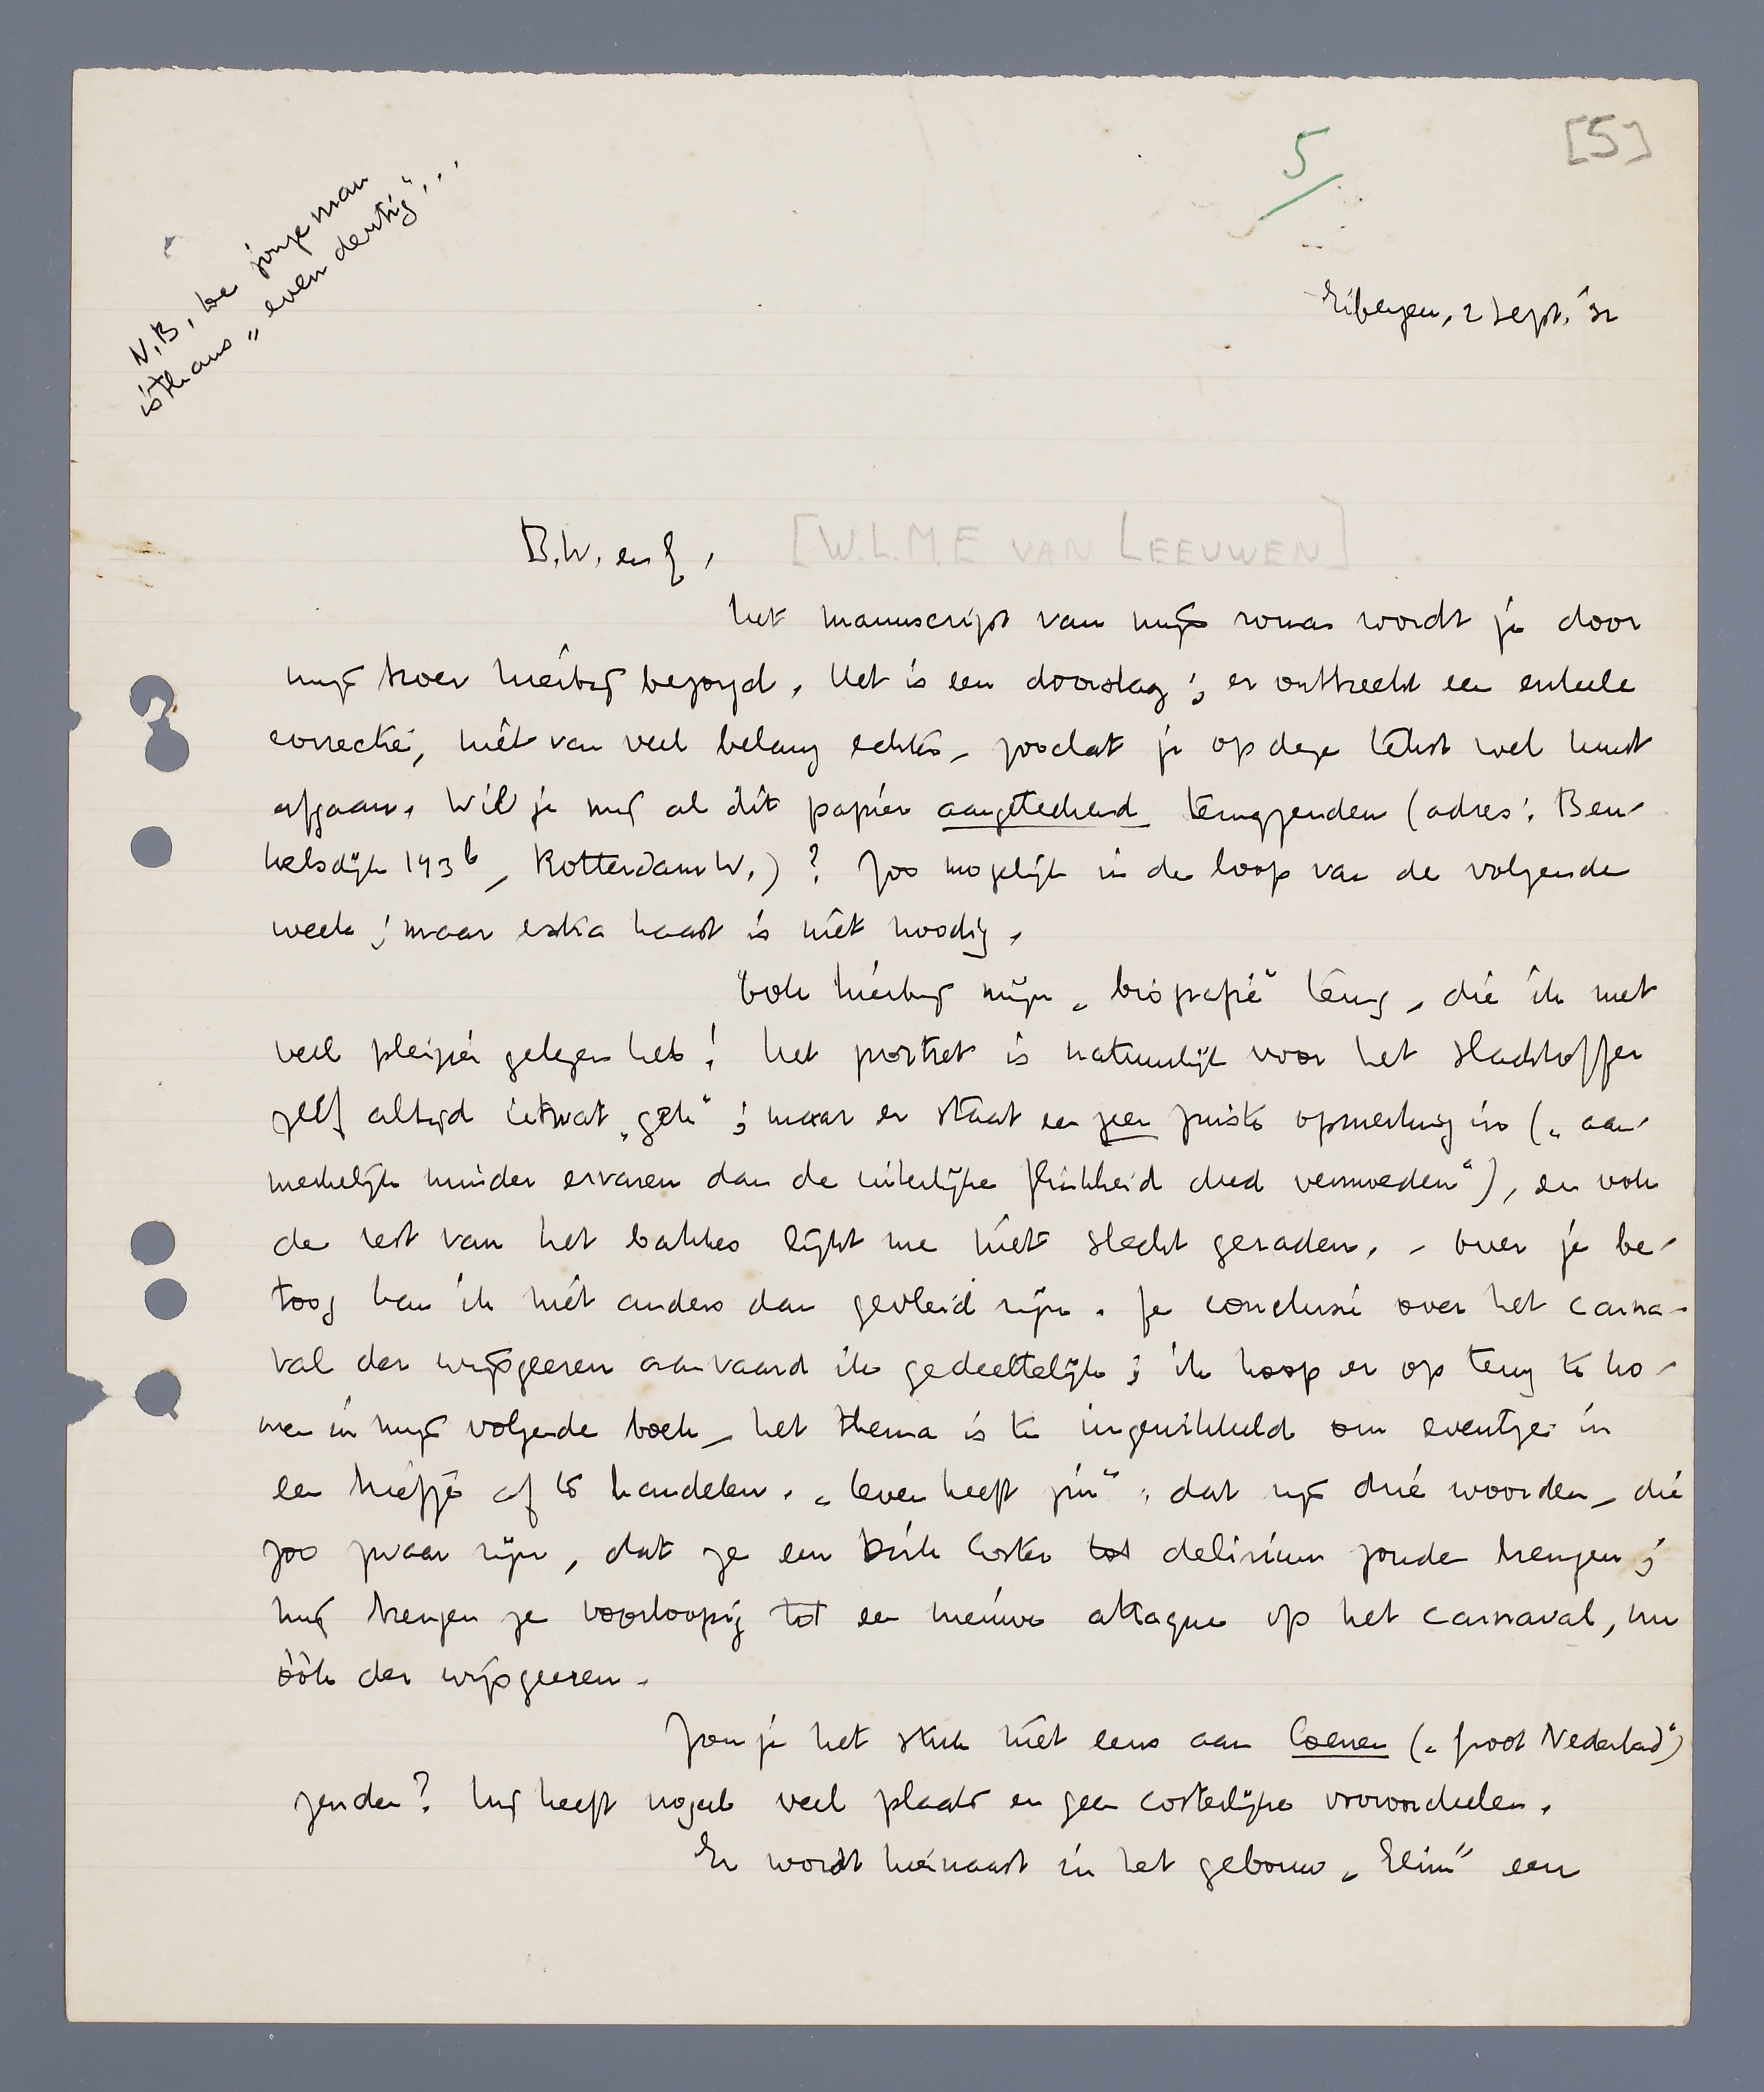 5
[5]
N.B. De jongeman
is thans „even dertig"...
Eibergen, 2 Sept. '32
B.W. en J,
[W.L.M.E VAN LEEUWEN]
het manuscript van mijn roman wordt je door
mijn broer hierbij bezorgd. Het is een doorslag; er ontbreekt een enkele
correctie, niet van veel belang echter, zoodat je op deze tekst wel kunt
afgaan. Wil je mij al dit papier aangeteekend terugzenden (adres: Beu-
kelsdijk 143b, Rotterdam W.)? Zoo mogelijk in de loop van de volgende
week; maar extra haast is niet noodig.
Ook hierbij mijn „biografie" terug, die ik met
veel pleizier gelezen heb! Het portret is natuurlijk voor het slachtoffer
zelf altijd ietwat „gek"; maar er staat een zeer juiste opmerking in („aan-
merkelijk minder ervaren dan de uiterlijke flinkheid deed vermoeden"), en ook
de rest van het bakkes lijkt me niet slecht geraden. - Over je be-
toog kan ik niet anders dan gevleid zijn. Je conclusie over het carna-
val der wijsgeeren aanvaard ik gedeeltelijk; ik hoop er op terug te ko-
men in mijn volgende boek, het thema is te ingewikkeld om eventjes in
een briefje af te handelen. „Leven heeft zin": dat zijn drie woorden, die
zoo zwaar zijn, dat ze een Dirk Coster tot delirium zouden brengen;
mij brengen ze voorloopig tot een nieuwe attaque op het carnaval, nu
óók der wijsgeeren.
Zou je het stuk niet eens aan Coenen („Groot Nederland")
zenden? Hij heeft nogal veel plaats en geen costerlijke vooroordeelen.
Er wordt hiernaast in het gebouw „Elim" een